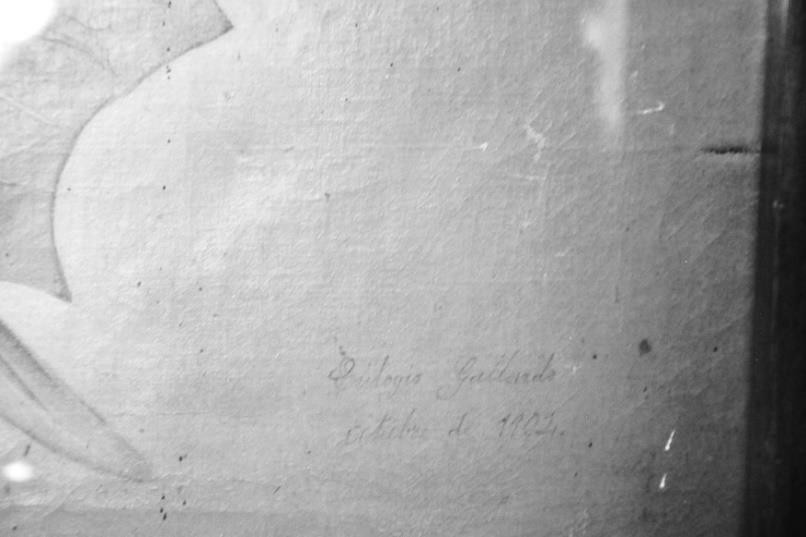 Eulogio Gallardo
octubre de 1902.